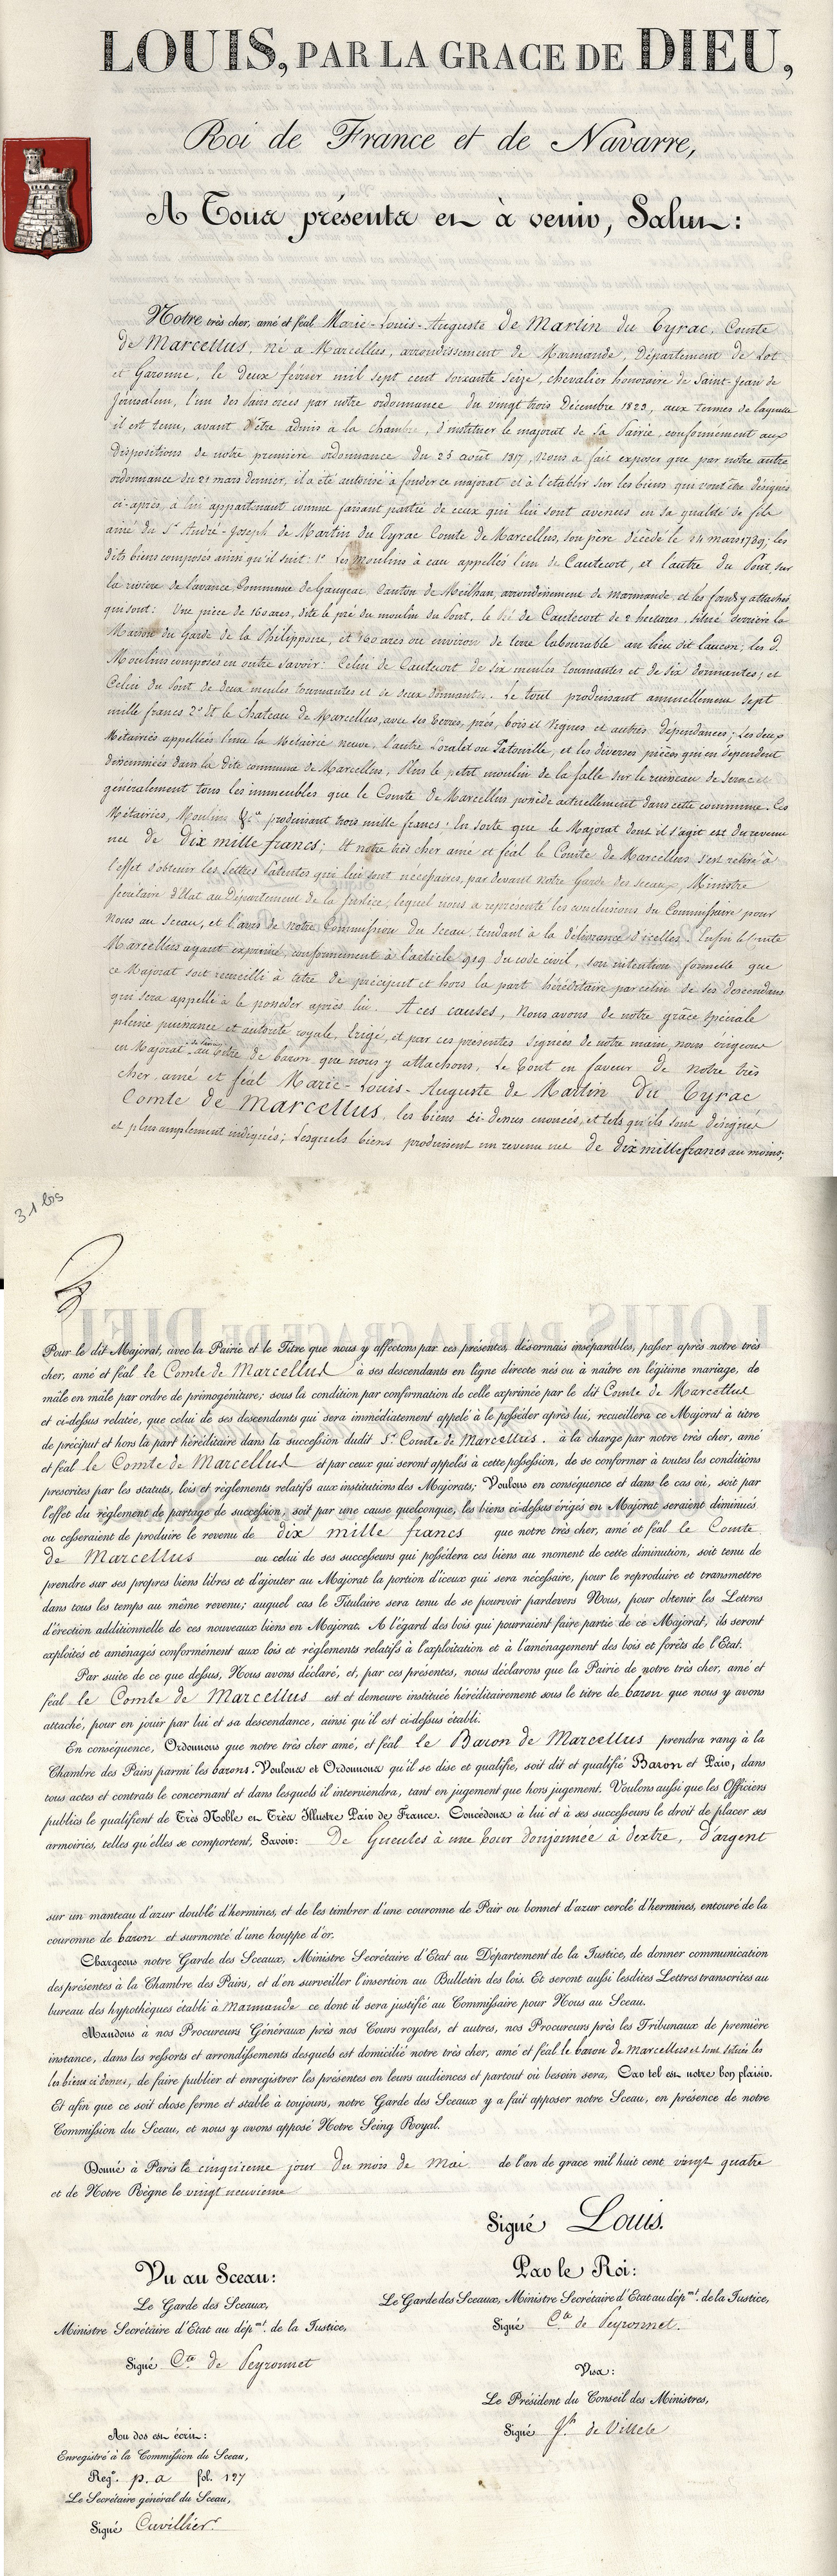 LOUIS, PAR LA GRACE DE DIEU,
Roi de France et de Navarre,
A Tous présents et à venir, Salut :
Notre très cher, amé et féal Marie-Louis-Auguste de Martin du Tyrac, Comte
de Marcellus, né à Marcellus, arrondissement de Marmande, Département de Lot
et Garonne, le deux février mil sept cent soixante seize, chevalier honoraire de Saint-Jean de
Jérusalem, l'un des Pairs créés par notre ordonnance du vingt trois Décembre 1823, aux termes de laquelle
il est tenu, avant d'être admis à la chambre, d'instituer le majorat de sa Pairie, conformément aux
Dispositions de notre première ordonnance du 25 août 1817, Nous a fait exposer que par notre autre
ordonnance du 21 mars dernier, il a été autorisé à fonder ce majorat et à l'établir sur les biens qui vont être désignés
ci-après, à lui appartenant comme faisant partie de ceux qui lui sont avenus en sa qualité de fils
ainé du Sr André-Joseph de Martin du Tyrac Comte de Marcellus, son père décédé le 14 mars 1789; les
dits biens composés ainsi qu'il suit : 1° Les moulins à eau appellés l'un de Cautecort, et l'autre du Pont, sur
la rivière de l'avance, Commune de Gaugeac, Canton de Meilhan, arrondissement de marmande, et les fonds y attachés,
qui sont : Une pièce de 160 ares, dite le pré du moulin du Pont, le Pré de Cautecort de 2 hectares, situé derrière la
Maison du Garde de la Philippoire, et 160 ares ou environ de terre labourable au lieu dit laucon; les d.
Moulins composés en outre savoir : Celui de Cautecort de six meules tournantes et de six dormantes; et
Celui du Pont de deux meules tournantes et de deux dormant.. Le tout produisant annuellement sept
mille francs 2° Et le chateau de Marcellus, avec ses terres, prés, bois et Vignes et autres dépendances; les deux
Métairies appellées l'une la Métairie neuve, l'autre Loralet ou Patouille, et les diverses pièces qui en dependent
disséminées dans la dite commune de Marcellus, Plus le petit moulin de la salle sur le ruisseau de
généralement tous les immeubles que le Comte de Marcellus possède actuellement dans cette commune. Ces
Métairies, Moulins &ca produisant trois mille francs : En sorte que le Majorat dont il s'agit est du revenu
net de dix mille francs; Et notre très cher amé et féal le Comte de Marcellus s'est retiré à
l'effet d'obtenir les Lettres Patentes qui lui sont nécessaires, par devant notre Garde des sceaux, Ministre
Secrétaire d'Etat au Département de la Justice, lequel nous a représenté les conclusions du Commissaire pour
Nous au Sceau, et l'avis de notre Commission du Sceau, tendant à la délivrance d'icelles. Enfin le Comte
Marcellus ayant exprimé, conformément à l'article 919 du code civil, son intention formelle que
ce Majorat soit recueilli à titre de préciput et hors la part héréditaire par celui de ses descendans
qui sera appellé à le posseder après lui. A ces causes, Nous avons de notre grâce spéciale
pleine puissance et autorité royale, Erigé, et par ces présentes signées de notre main, nous érigeons
en Majorat au titre de baron, que nous y attachons, Le Tout en faveur de notre très
cher amé et féal Marie-Louis-Auguste de Martin du Tyrac
Comte de Marcellus, les biens ci-dessus énoncés, et tels qu'ils sont désignés
et plus amplement indiqués; Lesquels biens produisent un revenu net de dix mille francs au moins;
31 bis
Pour le dit Majorat, avec la Pairie et le Titre que nous y affectons par ces présentes, désormais inséparables, passer après notre très
cher, amé et féal le Comte de Marcellus à ses descendants en ligne directe nés ou à naître en légitime mariage, de
mâle en mâle par ordre de primogéniture; sous la condition par confirmation de celle exprimée par le dit Comte de Marcellus
et ci-dessus relatée, que celui de ses descendants qui sera immédiatement appelé à le posséder après lui, recueillera ce Majorat à titre
de préciput et hors la part héréditaire dans la succession dudit Sr Comte de Marcellus. à la charge par notre très cher, amé
et féal le Comte de Marcellus et par ceux qui seront appelés à cette possession, de se conformer à toutes les conditions
prescrites par les statuts, lois et règlements relatifs aux institutions des Majorats; Voulons en conséquence et dans le cas où, soit par
l'effet du règlement de partage de succession, soit par une cause quelconque, les biens ci-dessus érigés en Majorat seraient diminués
ou cesseraient de produire le revenu de dix mille francs que notre très cher, amé et féal le Comte
de Marcellus ou celui de ses successeurs qui possédera ces biens au moment de cette diminution, soit tenu de
prendre sur ses propres biens libres et d'ajouter au Majorat la portion d'iceux qui sera nécessaire, pour le reproduire et transmettre
dans tous les temps au même revenu; auquel cas le Titulaire sera tenu de se pourvoir pardevers Nous, pour obtenir les Lettres
d'érection additionnelle de ces nouveaux biens en Majorat. A l'égard des bois qui pourraient faire partie de ce Majorat, ils seront
exploités et aménagés conformément aux lois et règlements relatifs à l'exploitation et à l'aménagement des bois et forêts de l'Etat.
Par suite de ce que dessus, Nous avons déclaré, et, par ces présentes, nous déclarons que la Pairie de notre très cher, amé et
féal le Comte de Marcellus est et demeure instituée héréditairement sous le titre de baron que nous y avons
attaché, pour en jouir par lui et sa descendance, ainsi qu'il est ci-dessus établi.
En conséquence, Ordonnons que notre très cher amé, et féal le Baron de Marcellus prendra rang à la
Chambre des Pairs parmi les barons. Voulons et Ordonnons qu'il se dise et qualifie, soit dit et qualifié Baron et Pair, dans
tous actes et contrats le concernant et dans lesquels il interviendra, tant en jugement que hors jugement. Voulons aussi que les Officiers
publics le qualifient de Très Noble et Très Illustre Pair de France. Concédons à lui et à ses successeurs le droit de placer ses
armoiries, telles qu'elles se comportent, Savoir : De Gueules à une tour donjonnée à dextre, d'argent
sur un manteau d'azur doublé d'hermines, et de les timbrer d'une couronne de Pair ou bonnet d'azur cerclé d'hermines, entouré de la
couronne de baron et surmonté d'une houppe d'or.
Chargeons notre Garde des Sceaux, Ministre Secrétaire d'Etat au Département de la Justice, de donner communication
des présentes à la Chambre des Pairs, et d'en surveiller l'insertion au Bulletin des lois. Et seront aussi lesdites Lettres transcrites au
bureau des hypothèques établi à Marmande ce dont il sera justifié au Commissaire pour Nous au Sceau.
Mandons à nos Procureurs Généraux près nos Cours royales, et autres, nos Procureurs près les Tribunaux de première
instance, dans les ressorts et arrondissements desquels est domicilié notre très cher, amé et féal le baron de Marcellus et sont situés les
les biens ci dessus, de faire publier et enregistrer les présentes en leurs audiences et partout où besoin sera, Car tel est notre bon plaisir.
Et afin que ce soit chose ferme et stable à toujours, notre Garde des Sceaux y a fait apposer notre Sceau, en présence de notre
Commission du Sceau, et nous y avons apposé Notre Seing Royal.
Donné à Paris le cinquieme jour du mois de Mai de l'an de grace mil huit cent vingt quatre
et de Notre Règne le vingt neuvieme
Signé Louis.
Vu au Sceau :
Le Garde des Sceaux,
Ministre Secrétaire d'Etat au dépmt. de la Justice,
Signé Cte de Peyronnet
Par le Roi :
Le Garde des Sceaux, Ministre Secrétaire d'Etat au dépmt. de la Justice,
Signé Cte de Peyronnet.
Visa :
Le Président du Conseil des Ministres,
Signé Jh. de Villele
Au dos est écrit :
Enregistré à la Commission du Sceau,
Reg. p. a fol. 127
Le Secrétaire général du Sceau,
Signé Cuvillier